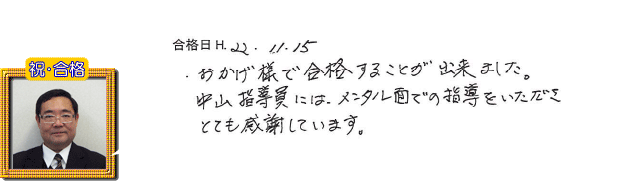 祝・合格
合格日 H. 22. 11. 15
・おかげ様で合格することが出来ました。
中山指導員には、メンタル面での指導をいただき
とても感謝しています。